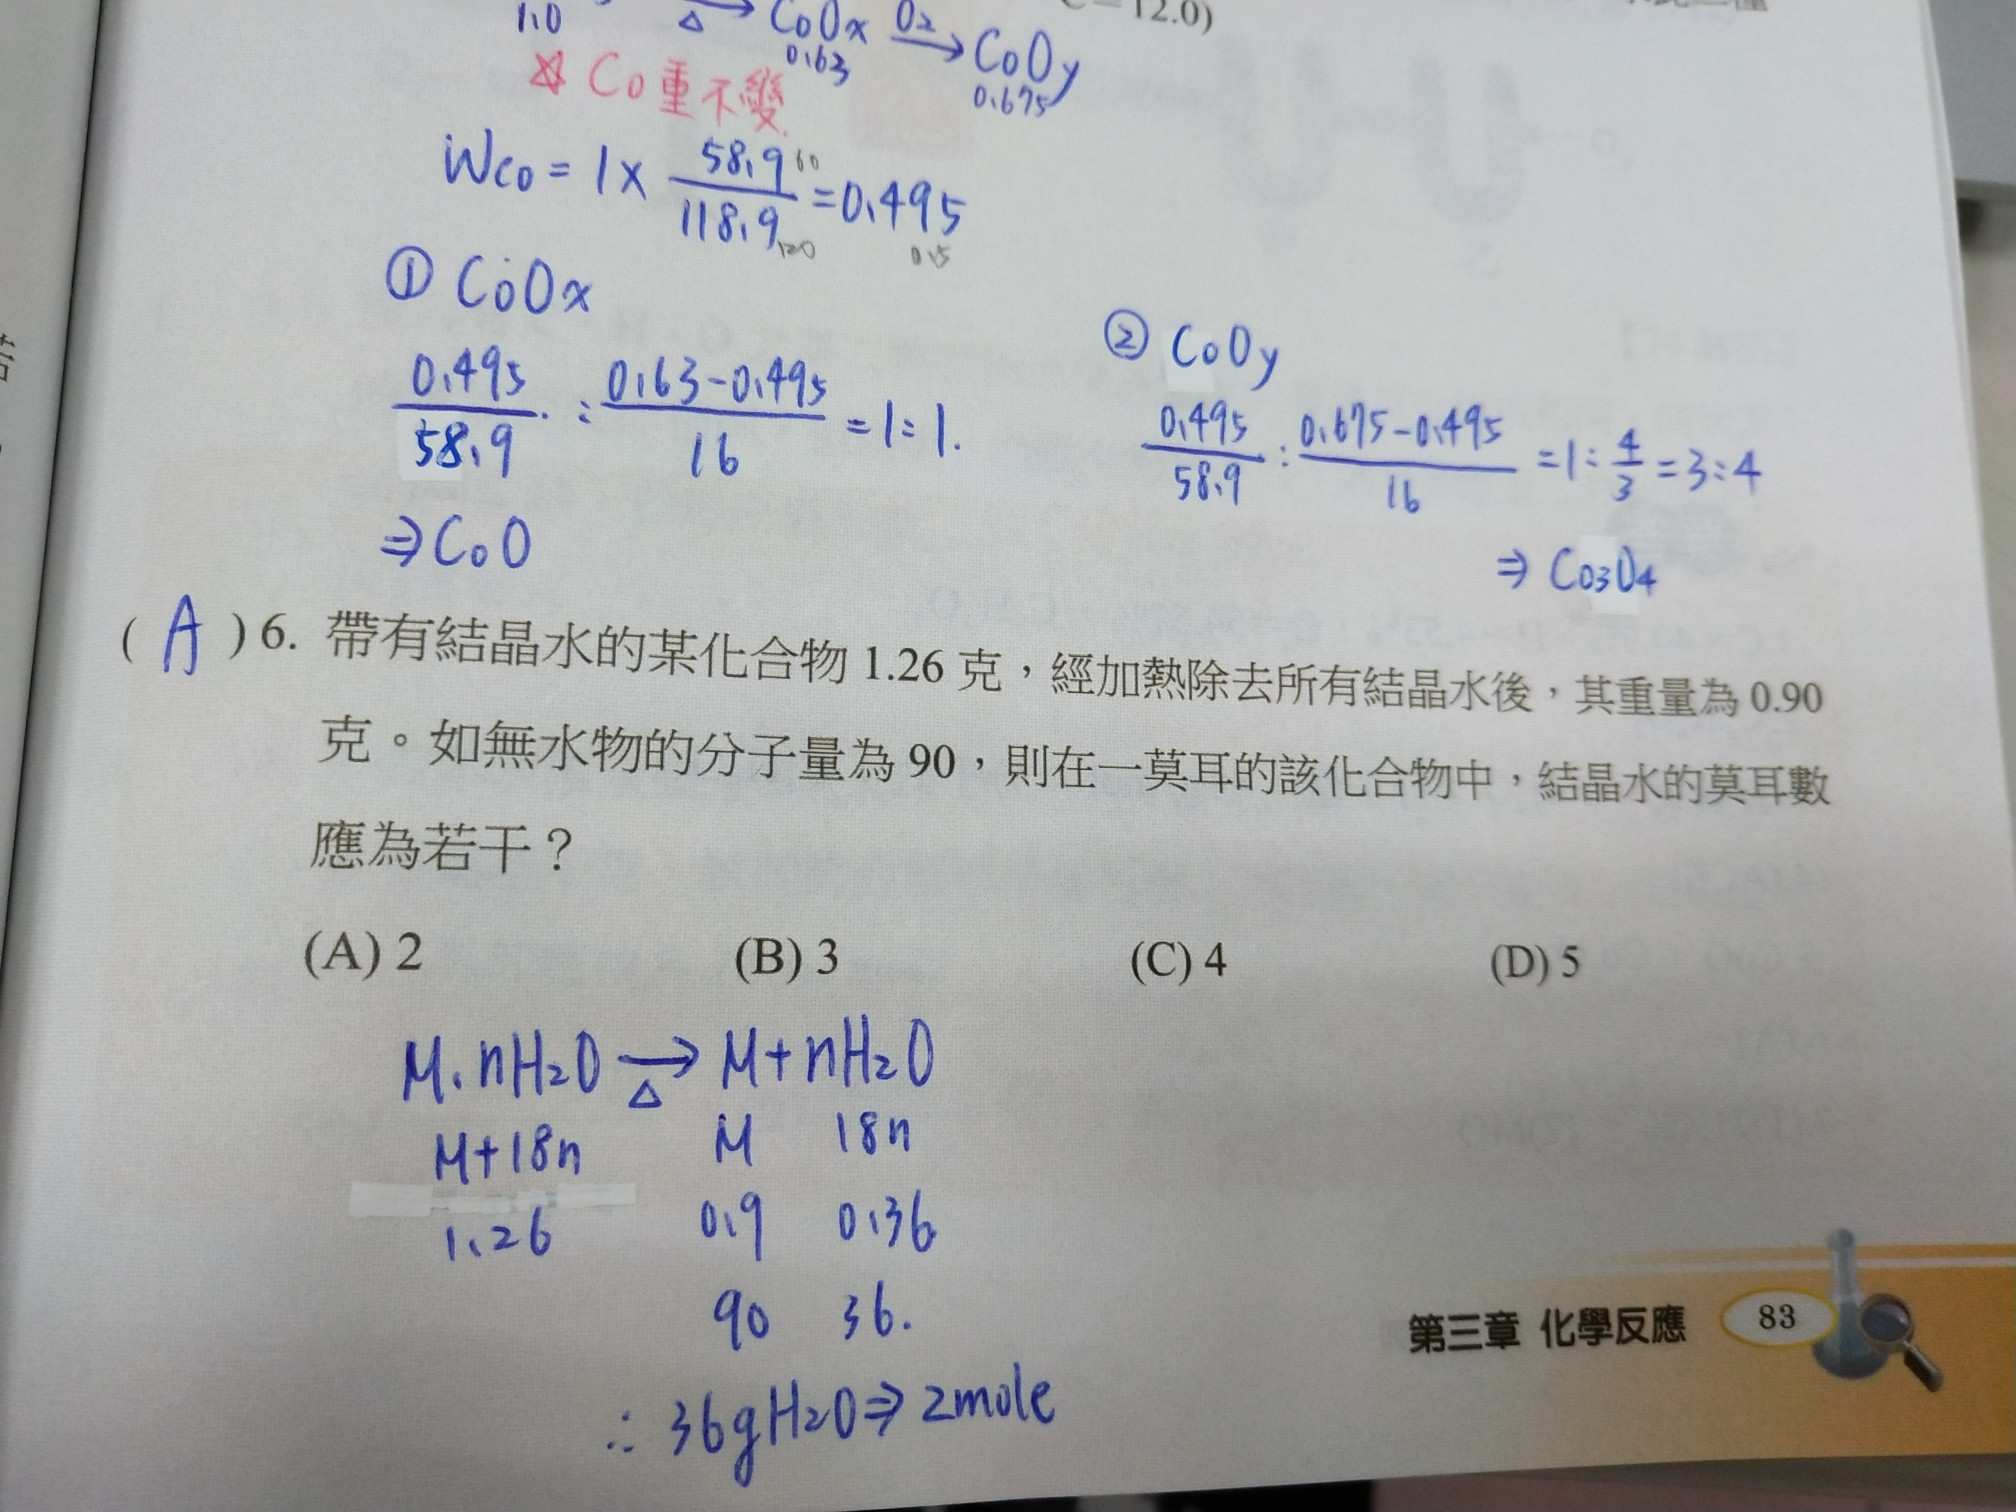 C=12.0)
1.0 Δ→ CoOx O2→ CoOy
0.63 0.675
☆ Co重不變
Wco = 1 × 58.9/118.9 = 0.495
60 120 0.5
① CoOx
0.495/58.9 : 0.63-0.495/16 = 1:1.
⇒ CoO
② CoOy
0.495/58.9 : 0.675-0.495/16 = 1:4/3 = 3:4
⇒ Co3O4
( A ) 6. 帶有結晶水的某化合物 1.26 克，經加熱除去所有結晶水後，其重量為 0.90
克。如無水物的分子量為 90，則在一莫耳的該化合物中，結晶水的莫耳數
應為若干？
(A) 2 (B) 3 (C) 4 (D) 5
M·nH2O →Δ M+nH2O
M+18n M 18n
1.26 0.9 0.36
90 36.
∴ 36gH2O⇒2mole
第三章 化學反應 83